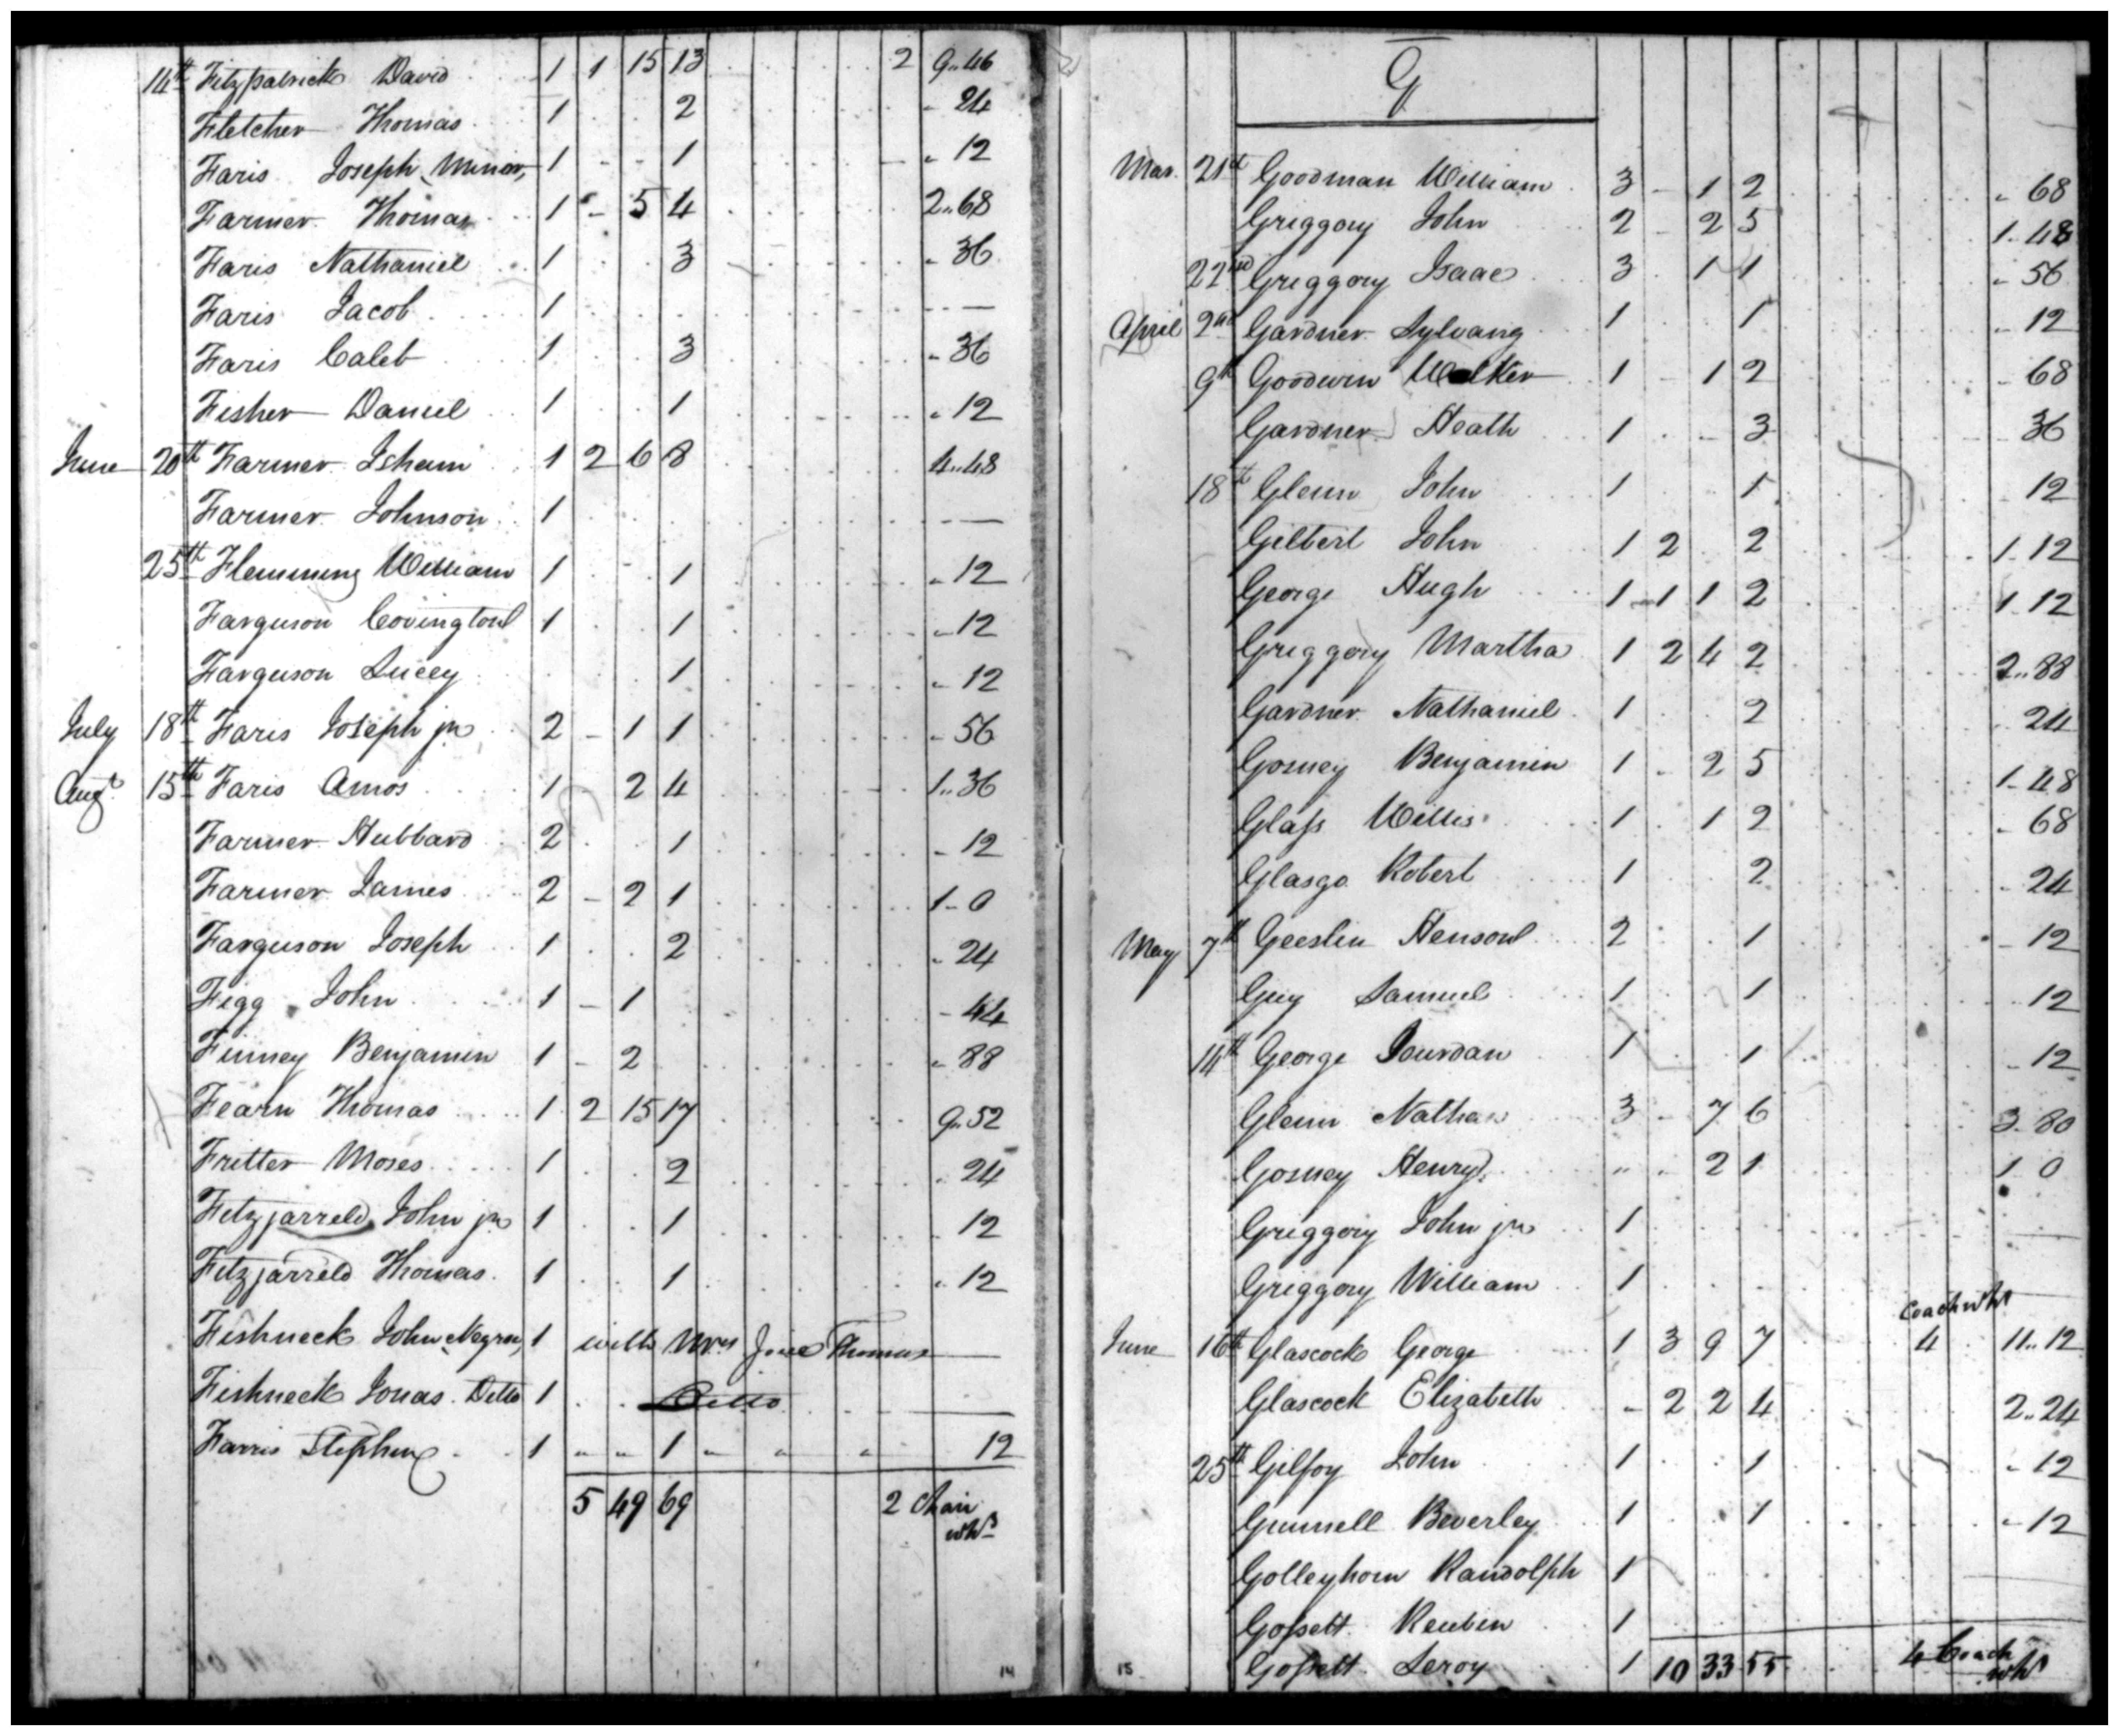 14th Fitzpatrick David 1 1 15 13 2 9..46
Fletcher Thomas 1 2 24
Faris Joseph, Minor, 1 1 12
Farmer Thomas 1 5 4 2..68
Faris Nathaniel 1 3 36
Faris Jacob 1 —
Faris Caleb 1 3 36
Fisher Daniel 1 1 12
June 20th Farmer Isham 1 2 6 8 4..48
Farmer Johnson 1 —
25th Flemming William 1 1 12
Farguson Covington 1 1 12
Farguson Lucey 1 12
July 18th Faris Joseph jr 2 - 1 1 56
Augt 15th Faris Amos 1 2 4 1..36
Farmer Hubbard 2 1 12
Farmer James 2 - 2 1 1-0
Farguson Joseph 1 2 24
Figg John 1 - 1 44
Finney Benjamin 1 - 2 88
Fearn Thomas 1 2 15 17 9..52
Fritter Moses 1 2 24
Fitzjarreld John jr 1 1 12
Fitzjarreld Thomas 1 1 12
Fishneck John, Negroe, 1 with Mrs Thomas —
Fishneck Jonas Ditto 1 Ditto —
Farris Stephen 1 " " 1 " " " 12
5 49 69 2 Chair
whs
14
G
Mar. 21st Goodman William 3 - 1 2 68
Griggory John 2 - 2 5 1..48
22nd Griggory Isaac 3 1 1 56
April 2nd Gardner 1 1 12
9th Goodwin Walker 1 - 1 2 68
Gardner Heath 1 3 36
18th Glenn John 1 1 12
Gilbert John 1 2 2 1.12
George Hugh 1 1 1 2 1.12
Griggory Martha 1 2 4 2 2..88
Gardner Nathaniel 1 2 24
Gosney Benjamin 1 - 2 5 1-48
Glass Willis 1 1 2 68
Glasgo Robert 1 2 24
May 7th Geeslin 2 1 12
Guy Samuel 1 1 12
14th George Jourdan 1 1 12
Glenn Nathan 3 - 7 6 3-80
Gosney Henry " 2 1 1 0
Griggory John jr 1 —
Griggory William 1 —
Coach whs
June 16th Glascock George 1 3 9 7 4 11..12
Glascock Elizabeth - 2 2 4 2..24
25th Gilfoy John 1 1 12
Gunnell Beverley 1 1 12
Golleyhorn Randolph 1
Gossett Reuben 1
Gossett Leroy 1 10 33 55 4 Coach
whs
15